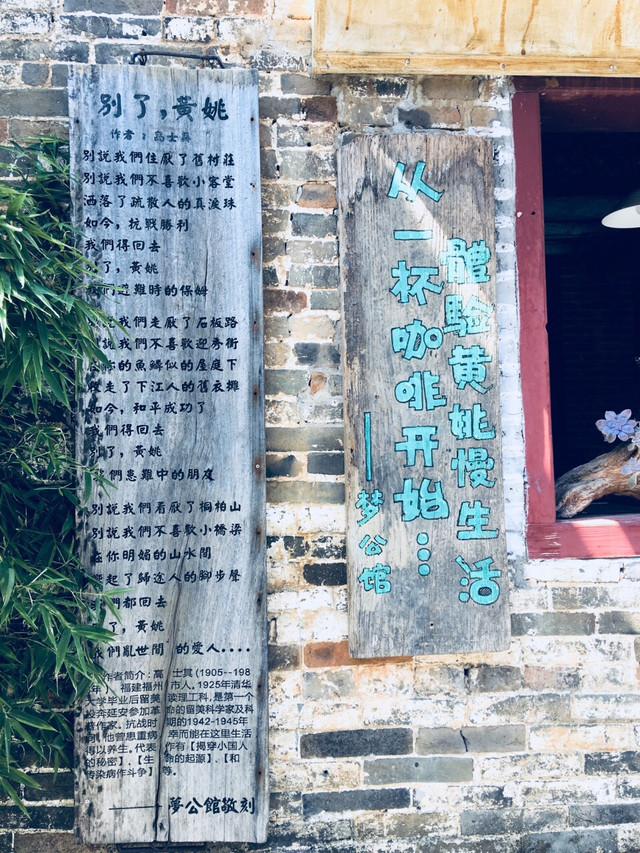 别了，黄姚
作者：高士其
别說我們住厭了舊村莊
别說我們不喜歡小客堂
洒落了疏散人的真淚珠
如今，抗戰勝利
我們得回去
了，黄姚
們避難時的保姆
說我們走厭了石板路
說我們不喜歡迎秀街
你的魚鱗似的屋庭下
走了下江人的舊衣攤
如今，和平成功了
我們得回去
别了，黄姚
我們患難中的朋友
别說我們看厭了桐柏山
别說我們不喜歡小橋梁
在你明媚的山水間
起了歸途人的腳步聲
們都回去
了，黄姚
我們亂世間的愛人....
作者简介：高士其(1905--198
年) 福建福州市人。1925年清华
大学毕业后留美读理工科，是第一个
投奔延安参加革命的留美科学家及科
作家。抗战时期的1942-1945年
间，他曾患重病幸而能在这里生活
得以养生。代表作有【揭穿小国人
的秘密】、【生命的起源】、【和
传染病作斗争】等。
——夢公館敬刻
體驗黄姚慢生活
从一杯咖啡开始…
——梦公馆